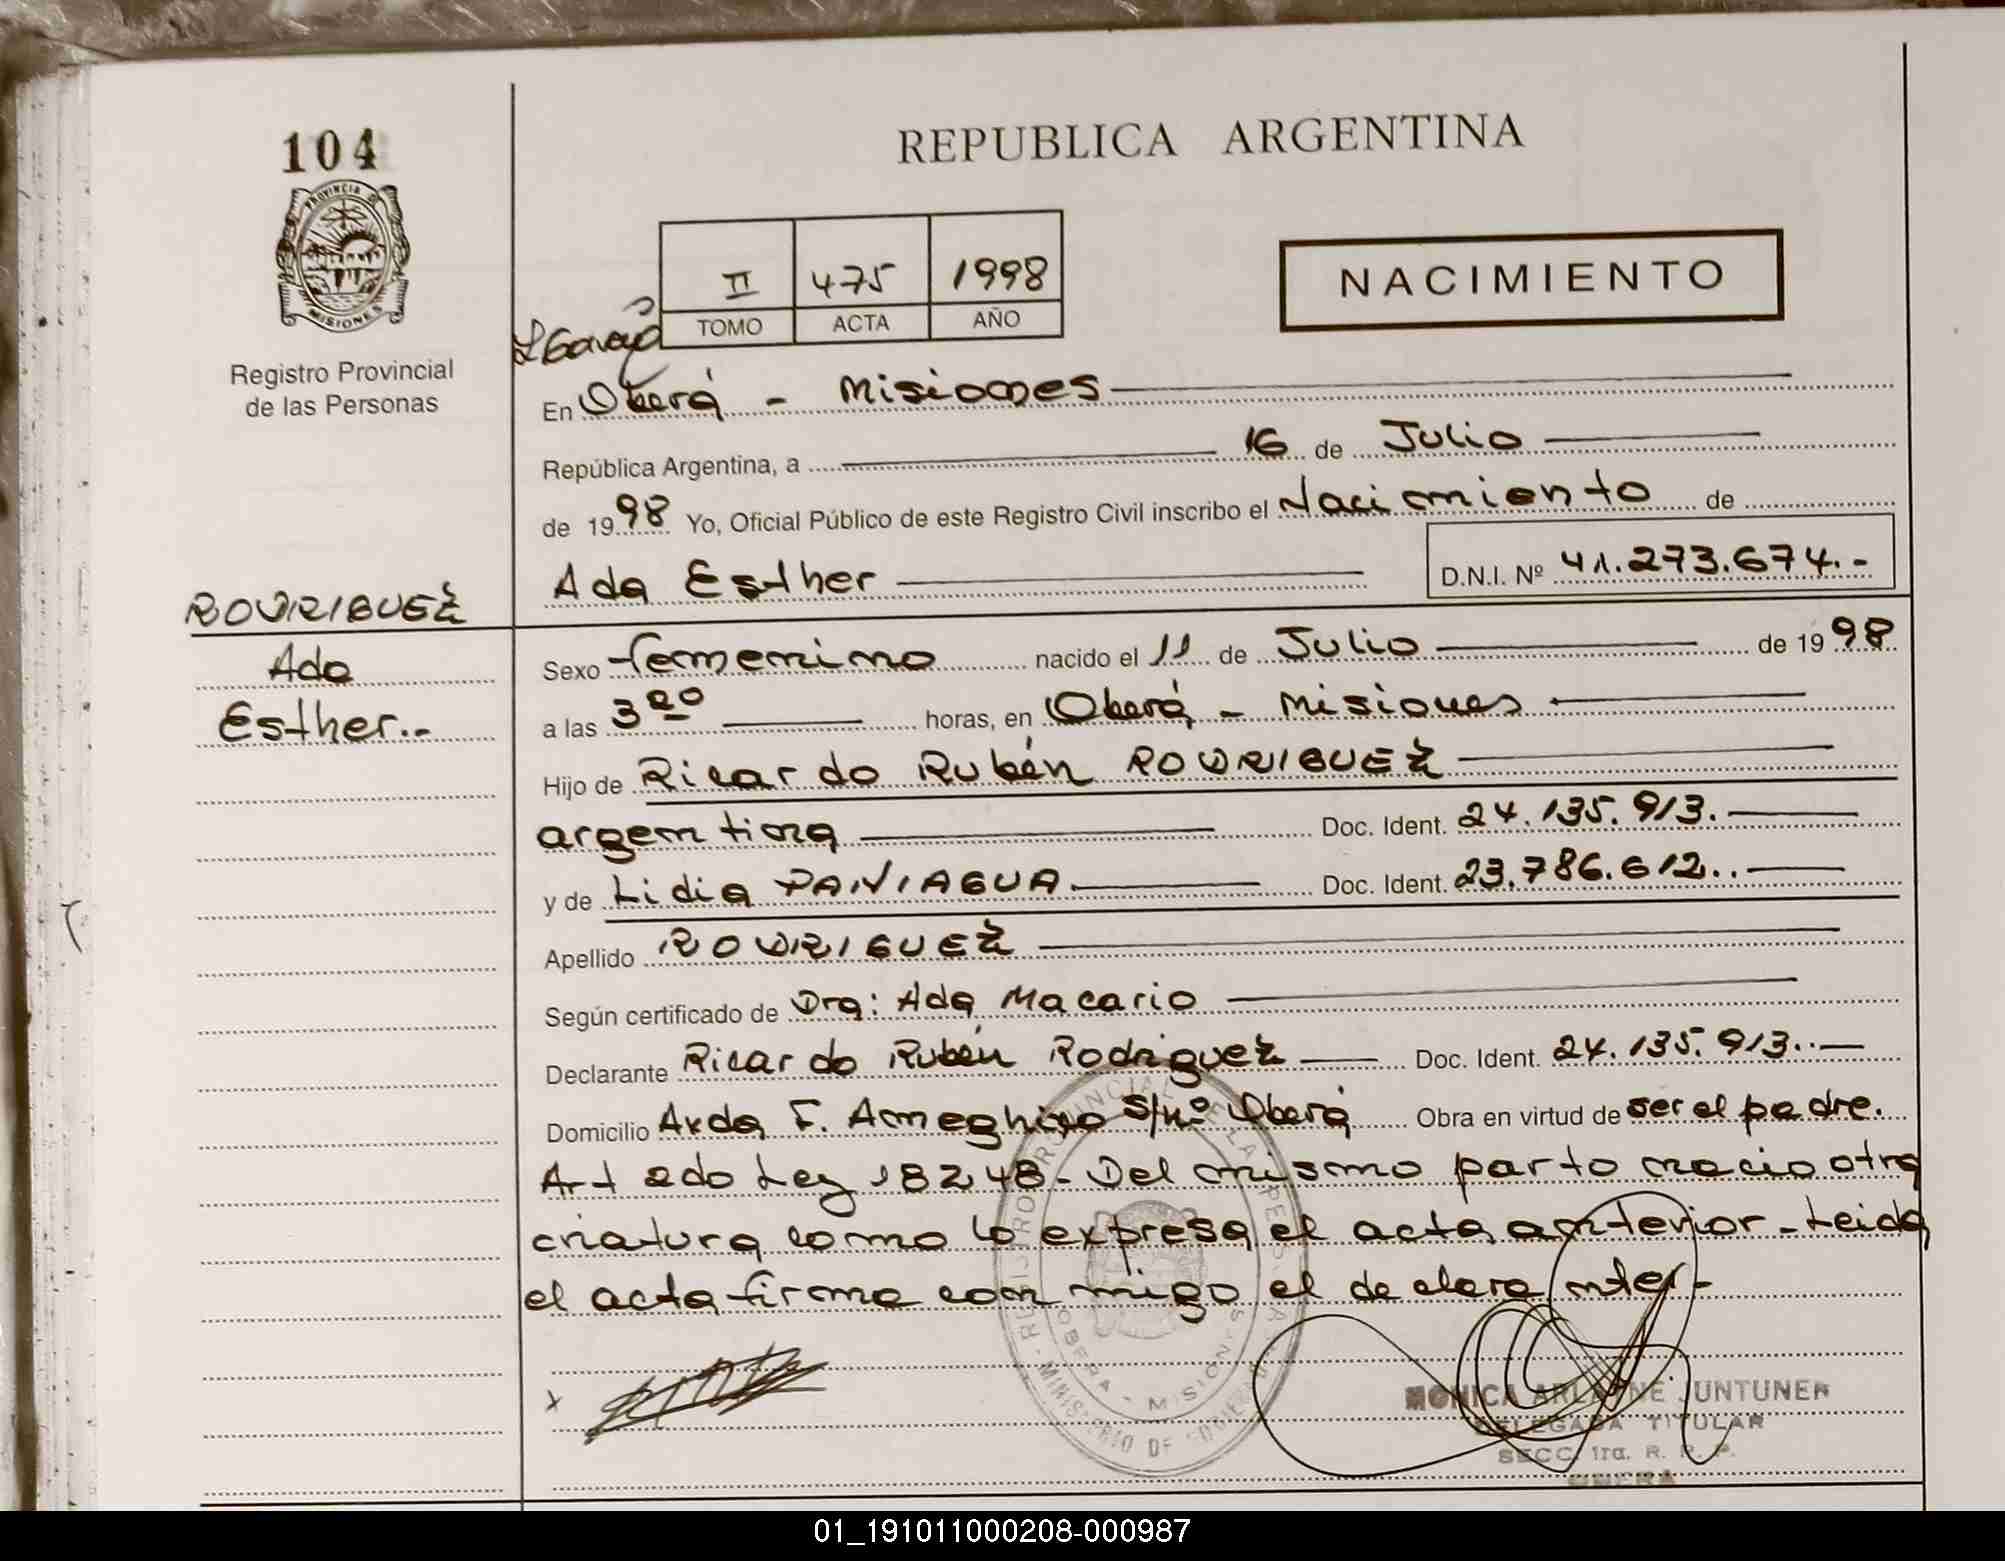 104
PROVINCIA D
MISIONES
Registro Provincial
de las Personas
REPUBLICA ARGENTINA
II 475 1998
TOMO ACTA AÑO
NACIMIENTO
En Oberá - Misiones
República Argentina, a 16 de Julio
de 1998 Yo, Oficial Público de este Registro Civil inscribo el Nacimiento de
Ada Esther D.N.I. Nº 41.273.674.-
RODRIGUEZ
Ada
Esther.-
Sexo femenino nacido el 11 de Julio de 1998
a las 3 20 horas, en Oberá - Misiones
Hijo de Ricardo Rubén RODRIGUEZ
argentina Doc. Ident. 24.135.913.
y de Lidia PANIAGUA. Doc. Ident. 23.786.612..
Apellido RODRIGUEZ
Según certificado de Dra: Ada Macario
Declarante Ricardo Rubén Rodriguez Doc. Ident. 24.135.913..
Domicilio Avda F. Ameghino S/nº Oberá Obra en virtud de ser el padre.
Art 2do Ley 18248- Del mismo parto nacio otra
criatura como lo expresa el acta anterior - Leida
el acta firma conmigo el declarante.-
x
OBERA - MISIONES
MONICA ARLENNE JUNTUNEN
DELEGADA TITULAR
SECC. 1ra. R. P. P.
OBERA
01_191011000208-000987